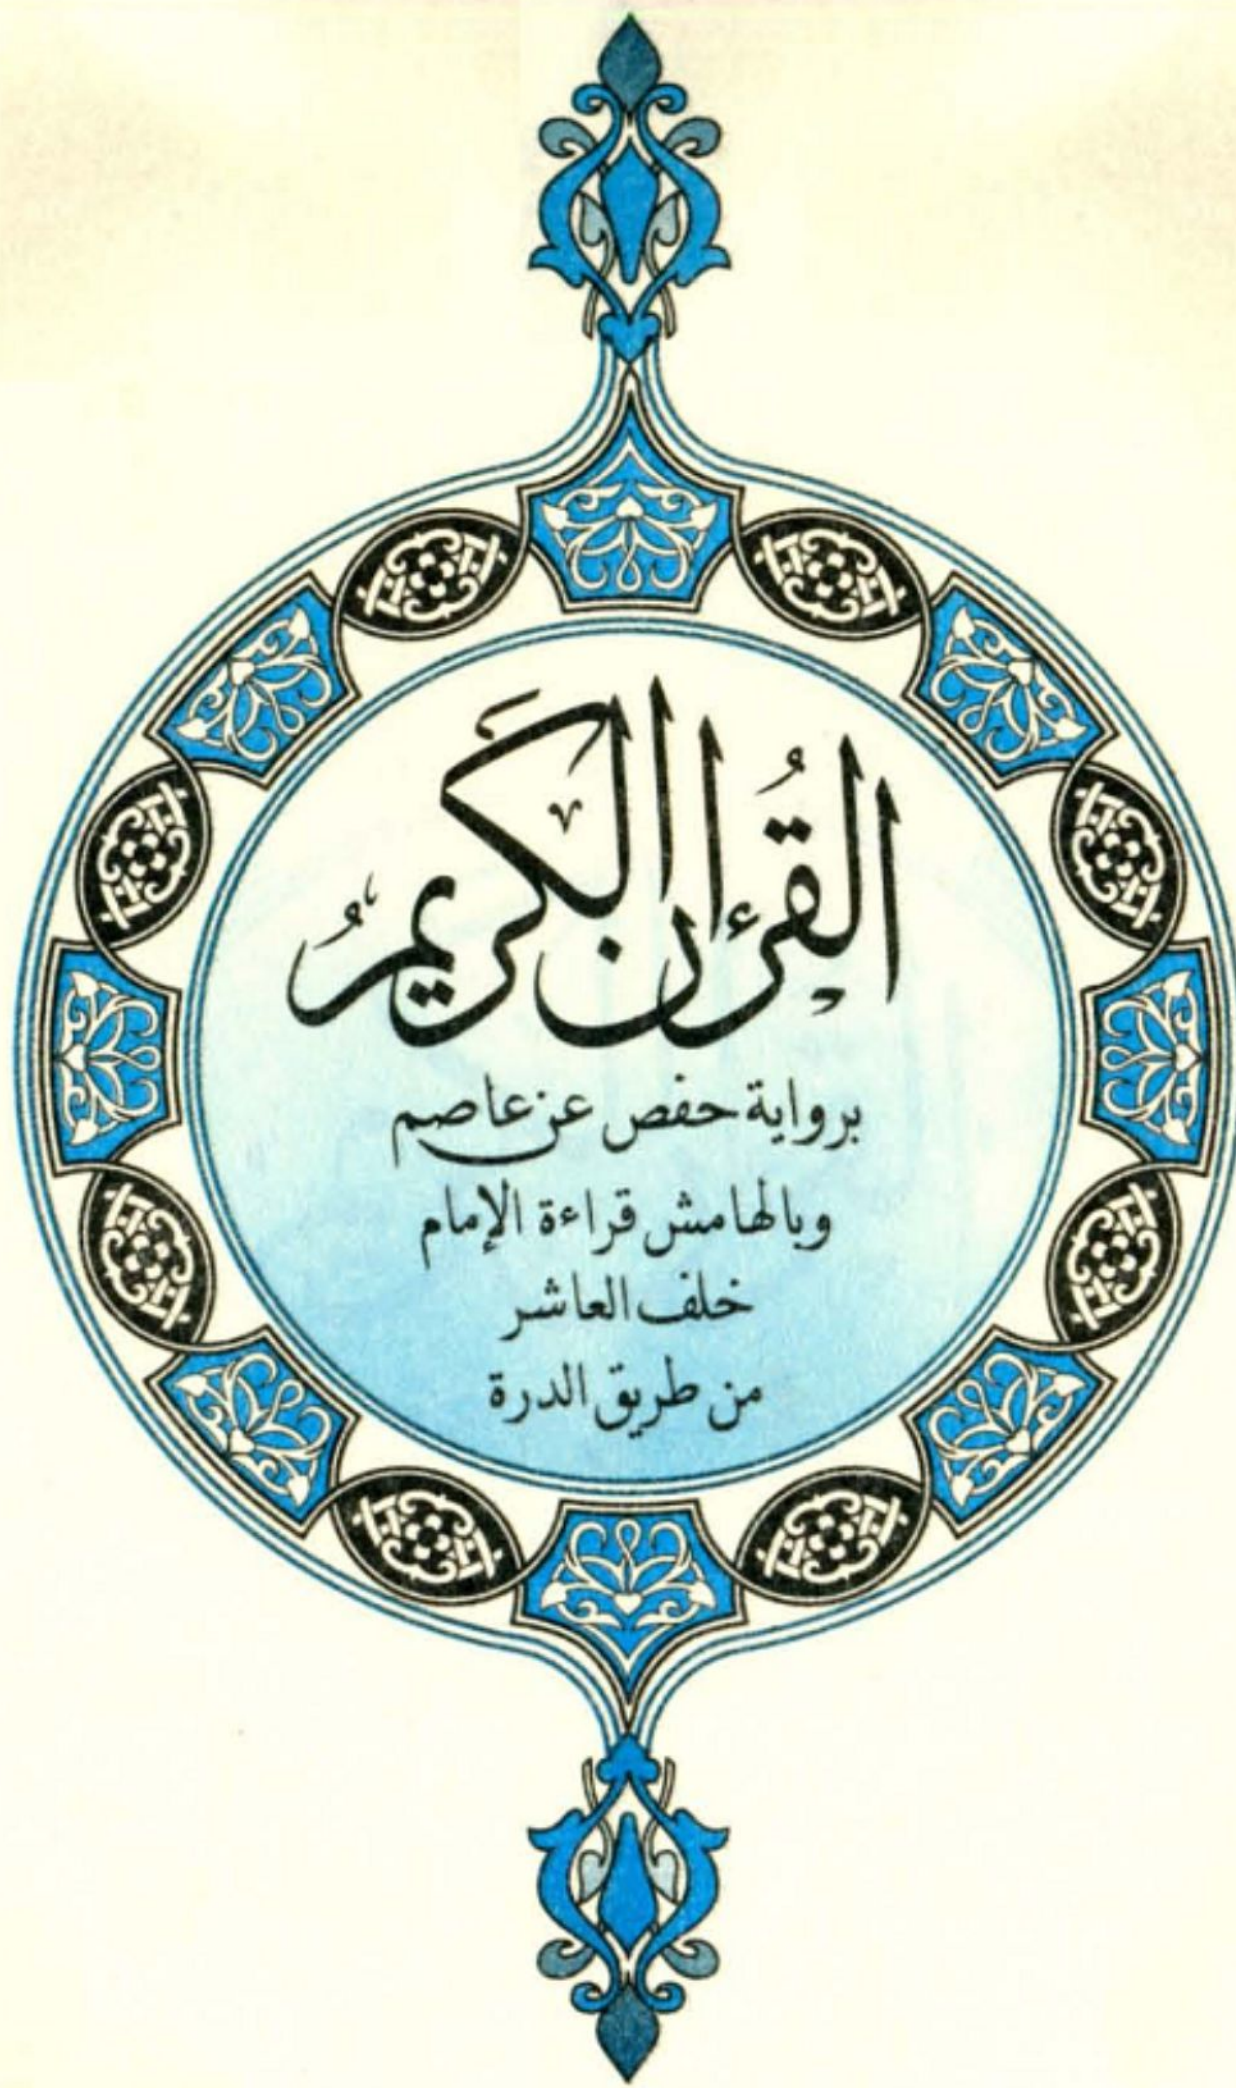 القُرْءَان الكَرِيمُ
برواية حفص عن عاصم
وبالهامش قراءة الإمام
خلف العاشر
من طريق الدرة